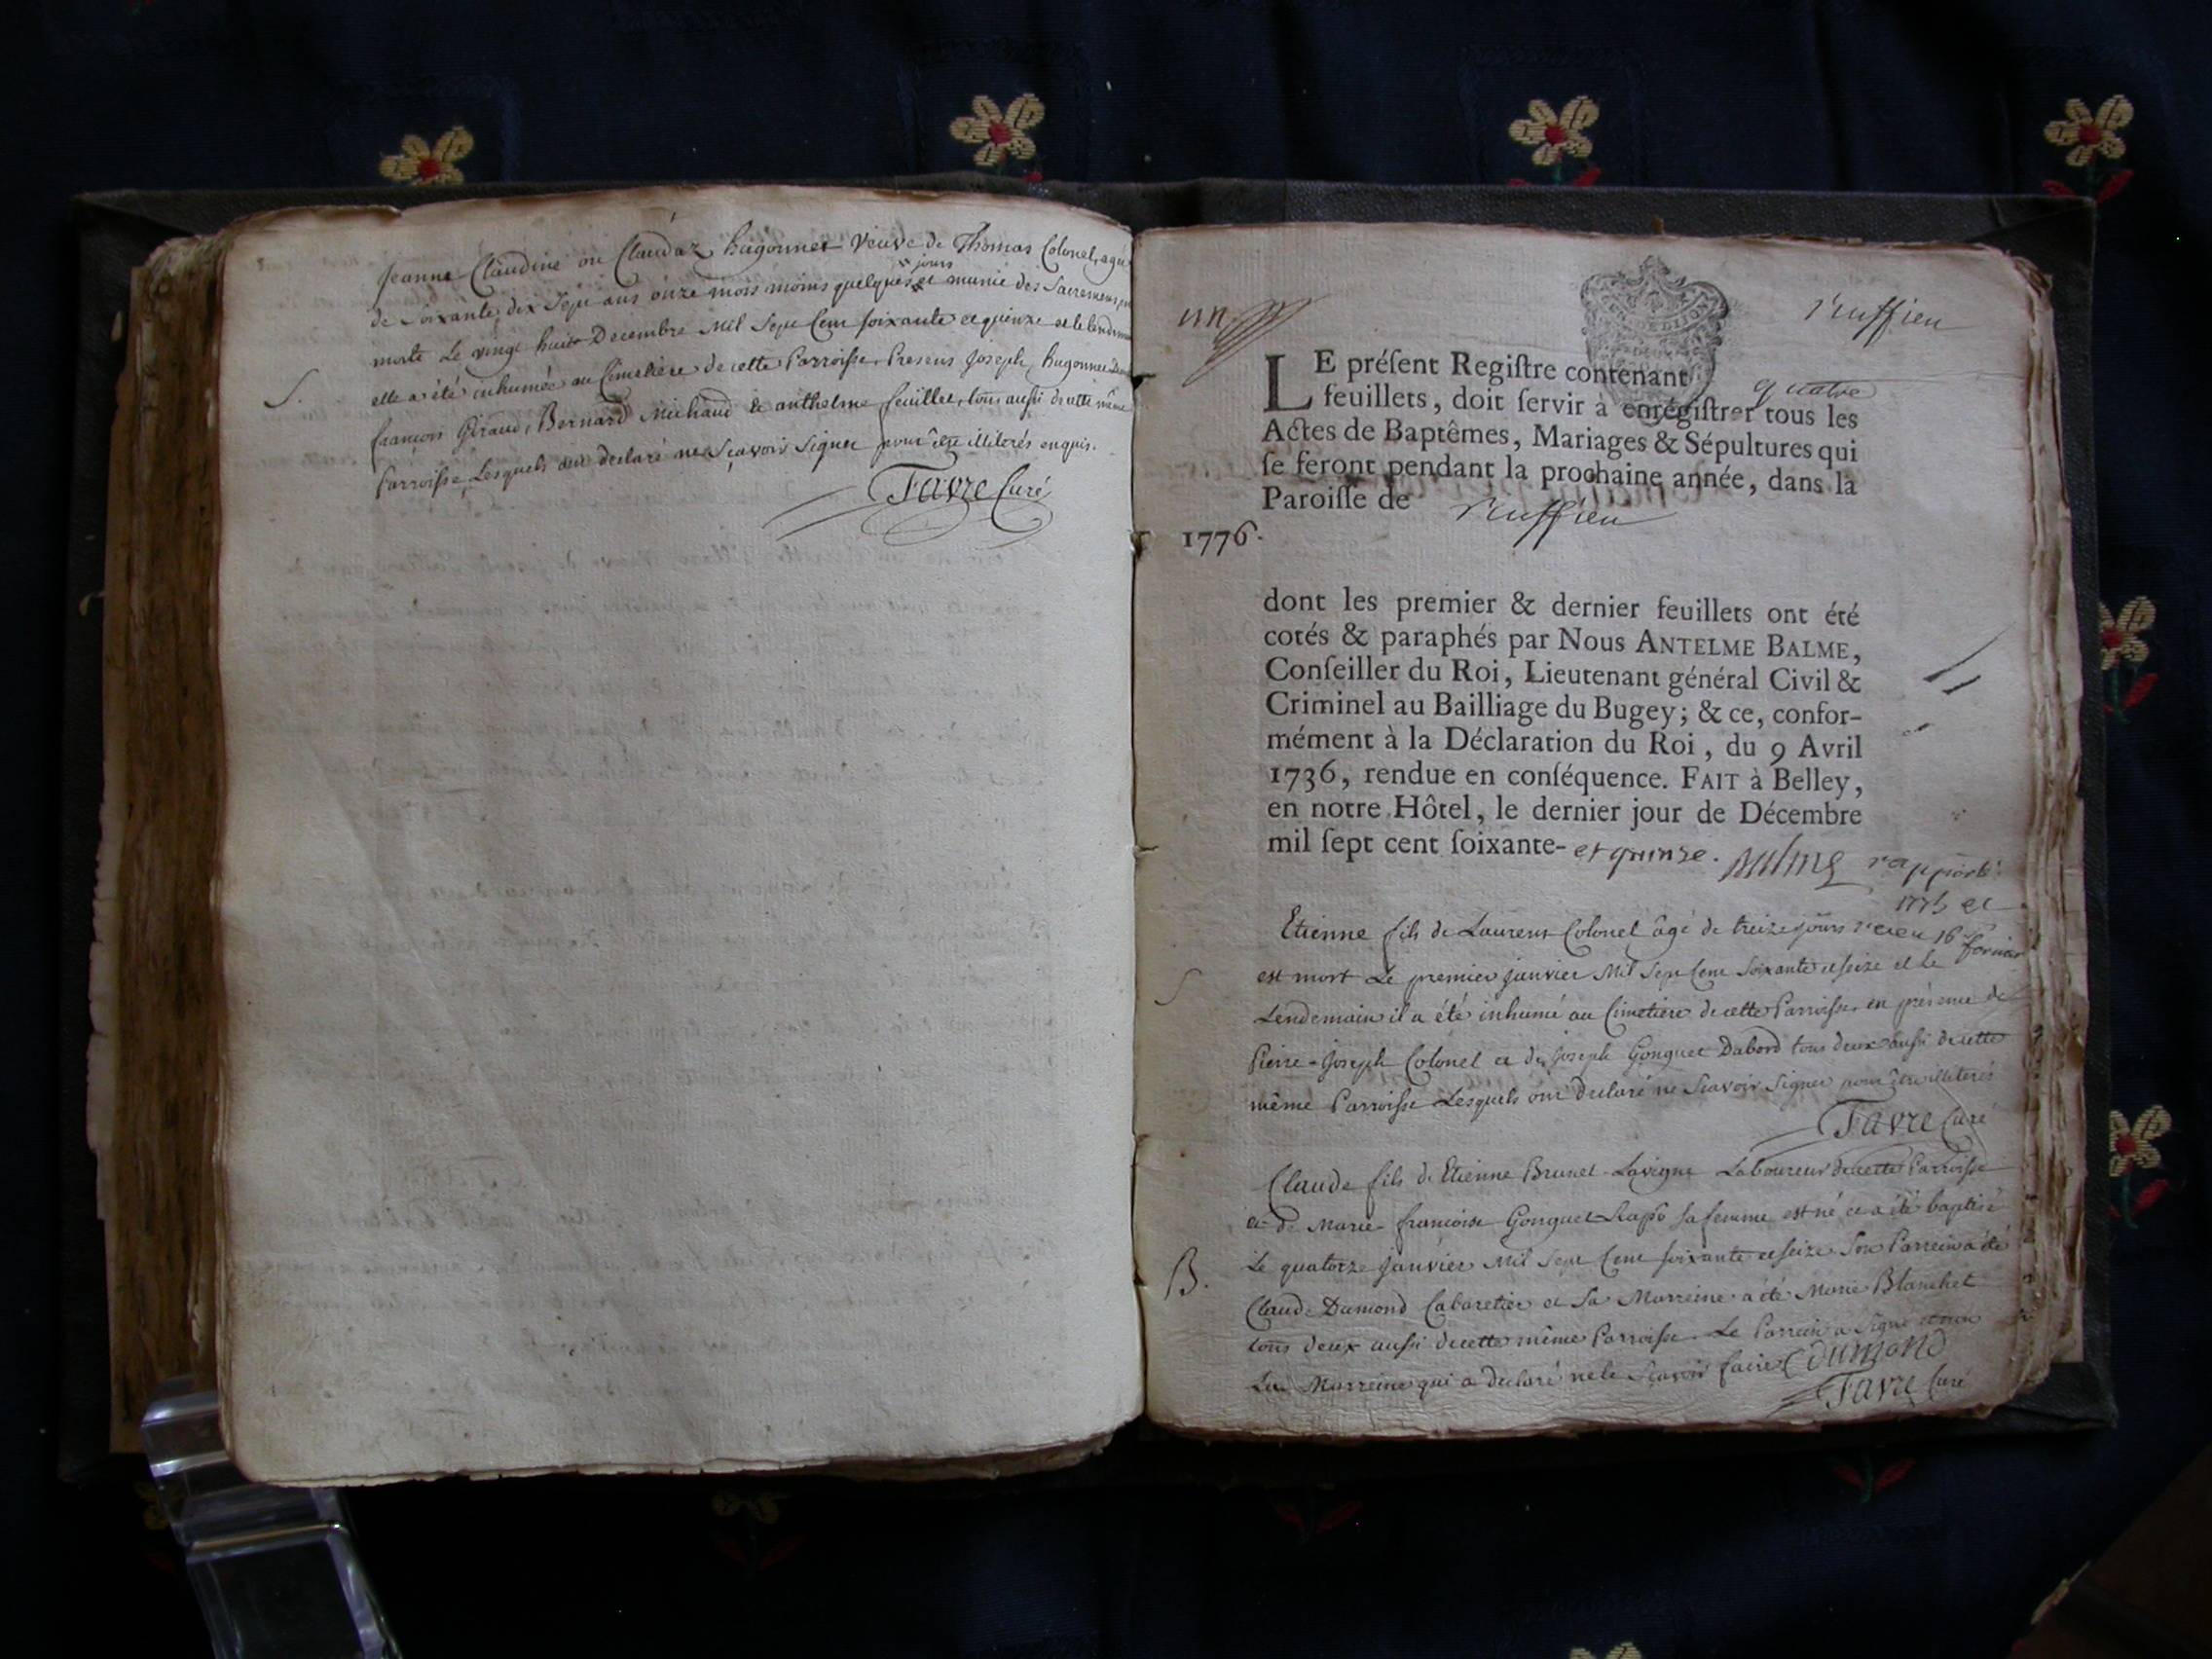 Jeanne Claudine ou Claudaz hugonnet Veuve de Thomas Colonel, agée
jours
de soixante dix Sept ans onze mois moins quelques et munie des Sacremens
morte Le vingt huit Decembre Mil Sept Cent soixante et quinze et le lendemain
S.
elle a été inhumée au Cimetiére de cette Parroisse. Presens Joseph hugonnet
françois Giraud, Bernard Michaud & anthelme feuillet, tous aussi de cette même
Parroisse Lesquels ont declaré ne Sçavoir Signer pour être illiterés enquis.
Favre Curé
un
Ruffieu
LE préſent Regiſtre contenant quatre
feuillets, doit ſervir à enrégiſtrer tous les
Actes de Baptêmes, Mariages & Sépultures qui
ſe feront pendant la prochaine année, dans la
Paroiſſe de Ruffieu
1776.
dont les premier & dernier feuillets ont été
cotés & paraphés par Nous ANTELME BALME,
Conſeiller du Roi, Lieutenant général Civil &
Criminel au Bailliage du Bugey; & ce, confor-
mément à la Déclaration du Roi, du 9 Avril
1736, rendue en conſéquence. FAIT à Belley,
en notre Hôtel, le dernier jour de Décembre
mil ſept cent ſoixante- et quinze. Balme rapporté
Etienne fils de Laurent Colonel âgé de treize jours
est mort Le premier janvier Mil Sept Cent Soixante et seize et Le
S
Lendemain il a été inhumé au Cimetiere de cette Parroisse, en présence de
Pierre-Joseph Colonel et de Joseph Gonguet Dabord tous deux aussi de cette
même Parroisse Lesquels ont declaré ne Scavoir Signer pour être illiterés
Favre Curé
Claude fils de Etienne Brunet-Lavigne Laboureur de cette Parroisse
et de Marie-françoise Gonguet sa femme est né et a été baptisé
Le quatorze janvier Mil Sept Cent soixante et seize Son Parrein a été
B.
Claude Dumond Cabaretier et Sa Marreine a été Marie Blanchet
tous deux aussi de cette même Parroisse. Le Parrein a Signé et non
La Marreine qui a declaré ne le Scavoir faire C dumond
Favre Curé